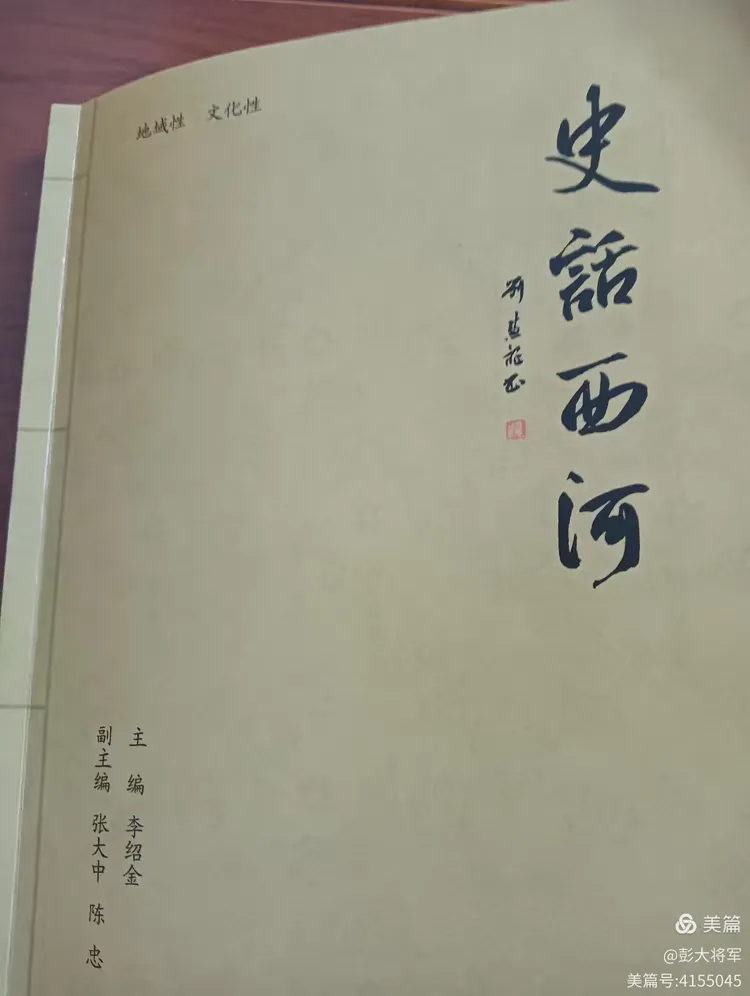 地域性 文化性
史話西河
主 编 李绍金
副主编 张大中 陈 忠
美篇
@彭大将军
美篇号:4155045